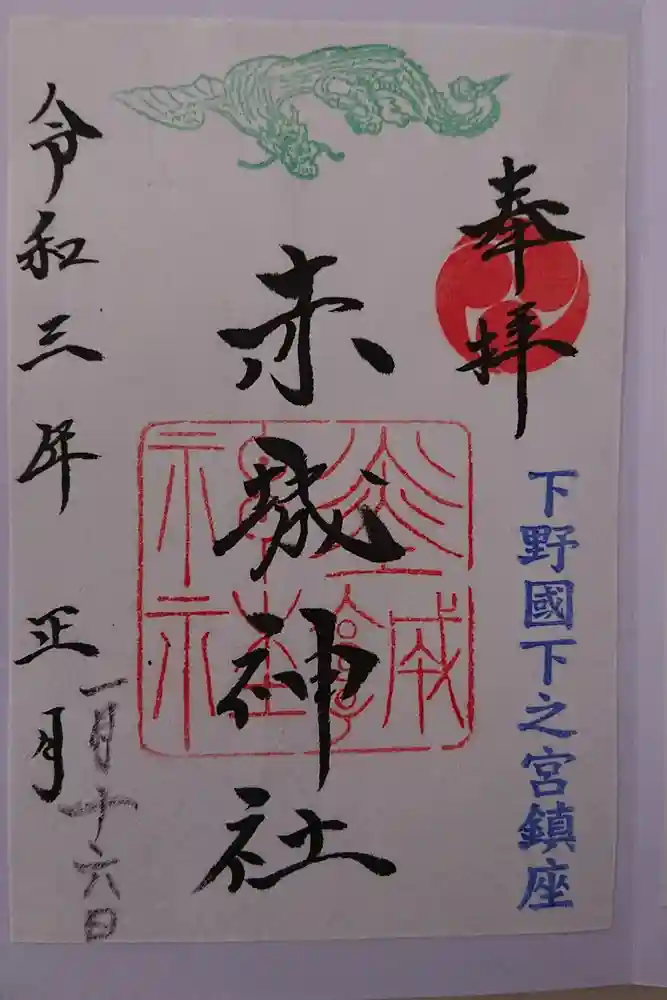 奉拝
下野國下之宮鎮座
赤城神社
令和三年 正月
一月十六日
赤城神社